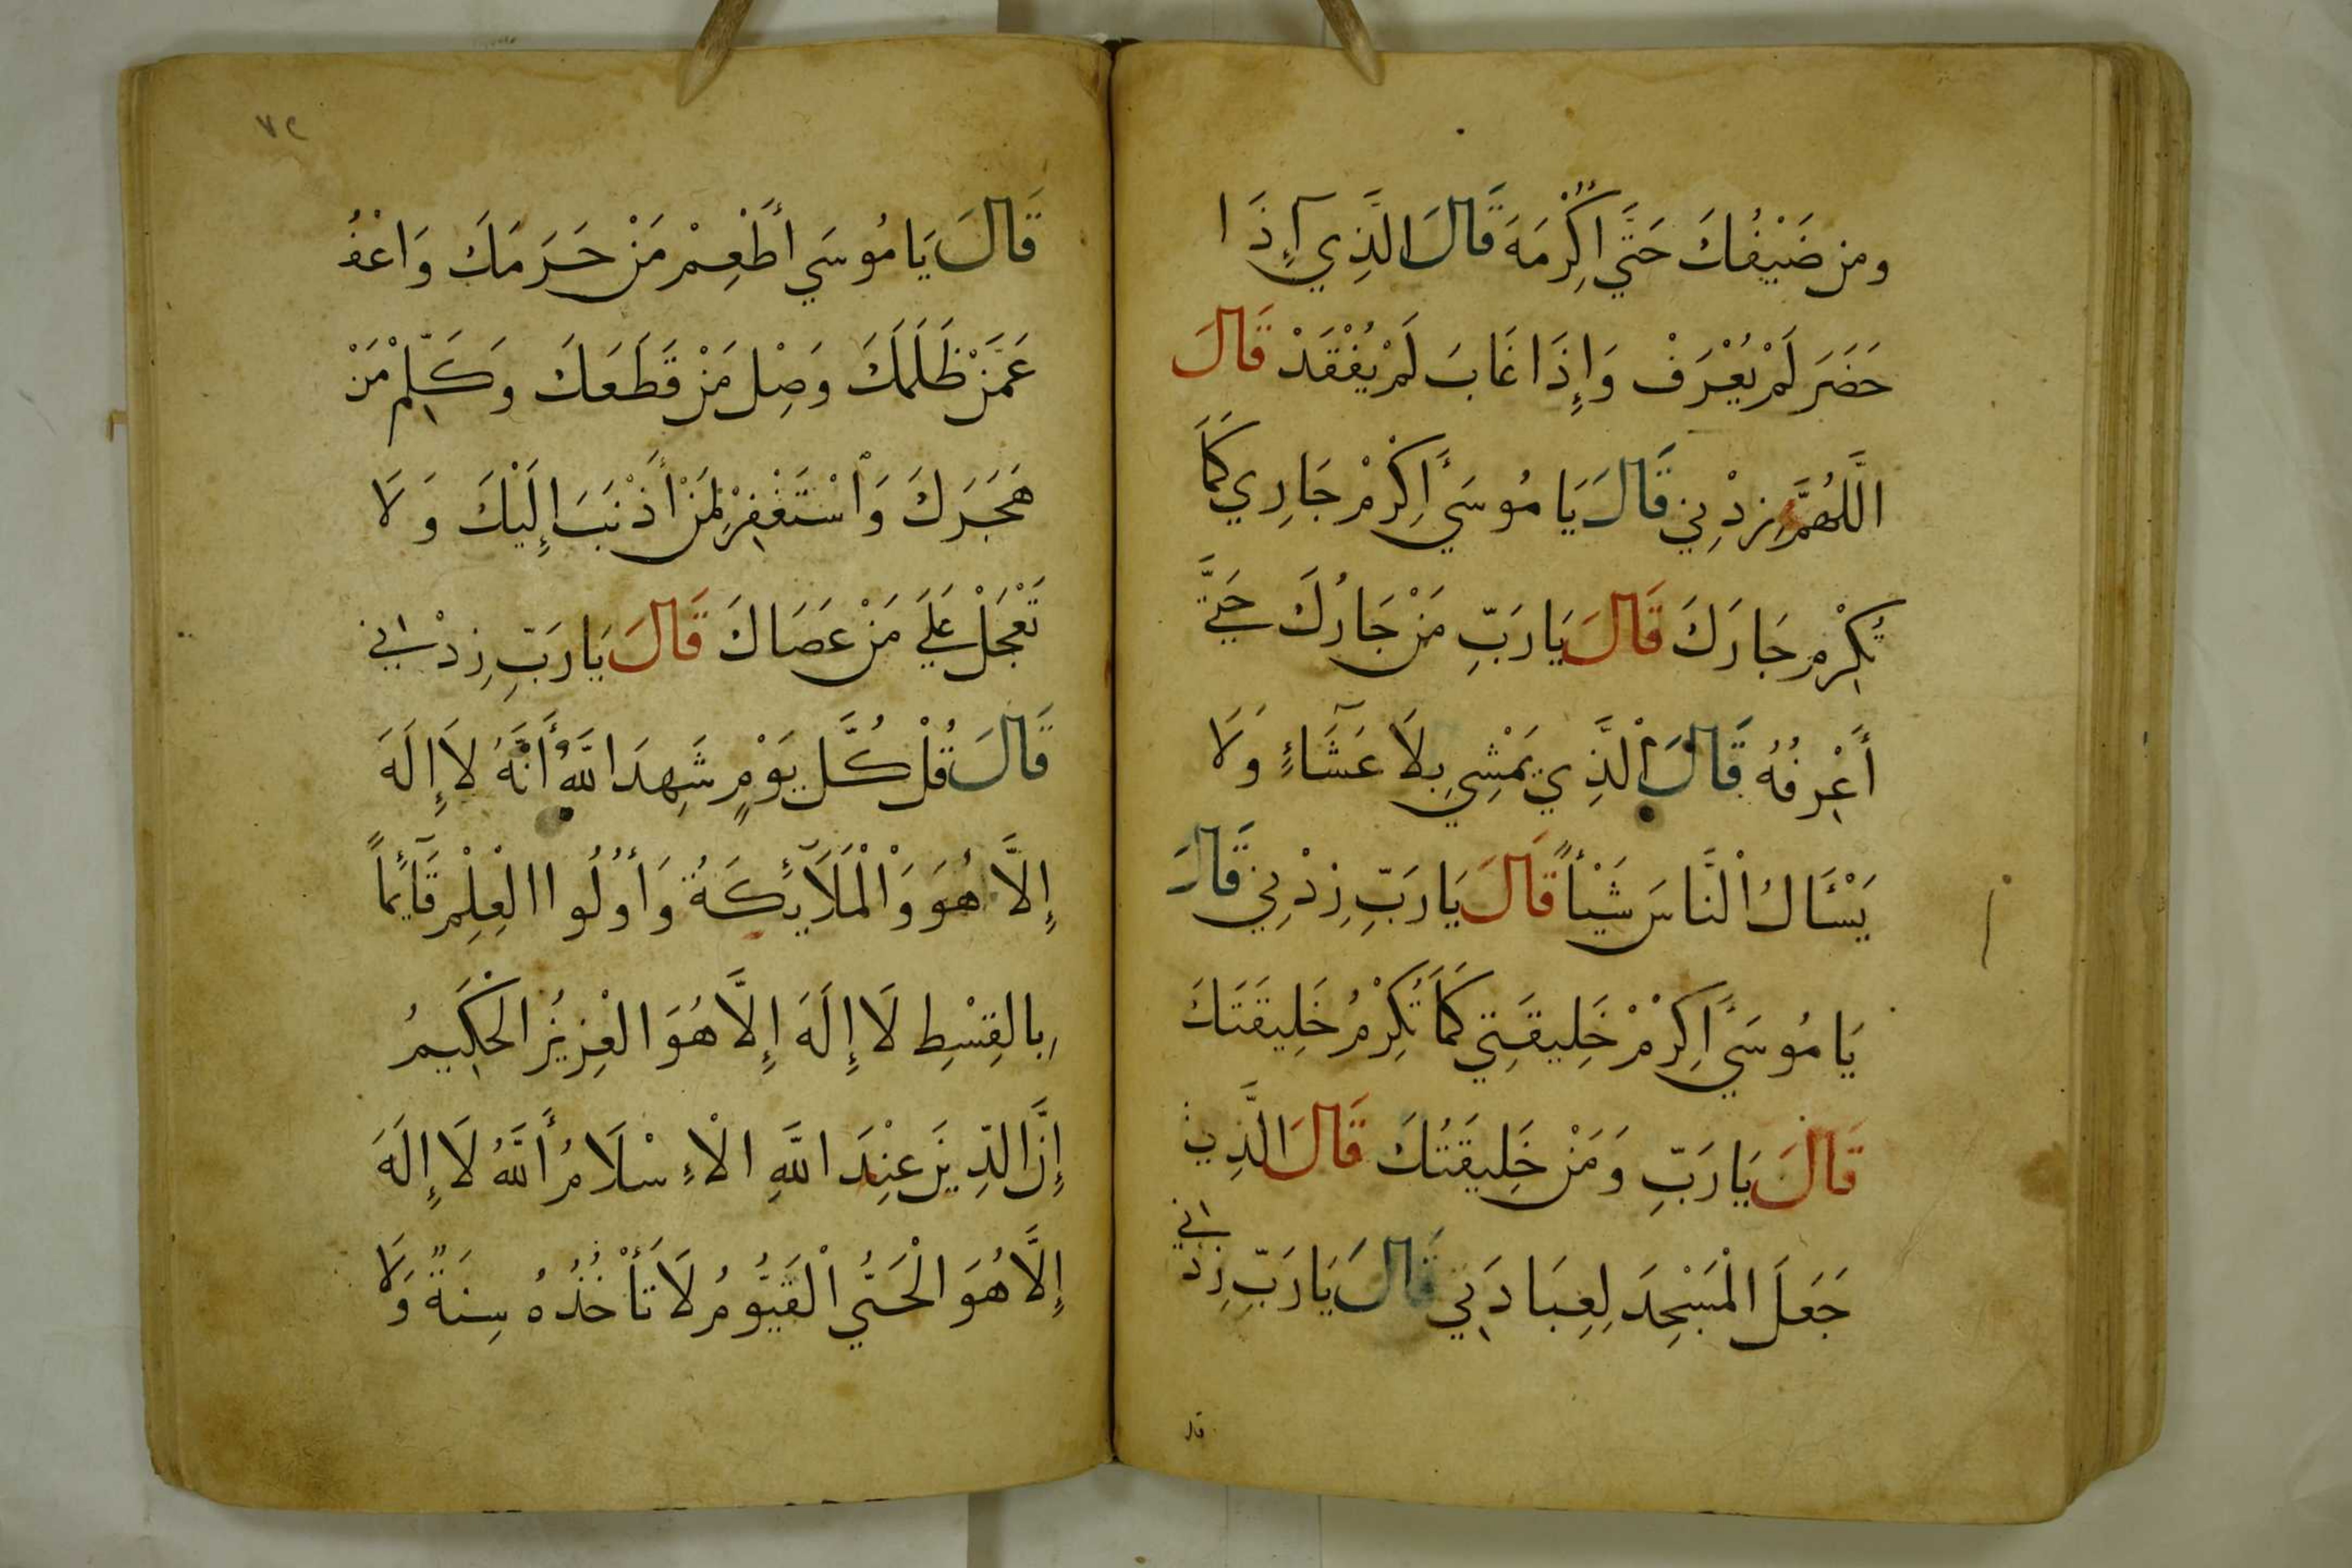 ومن ضَيْفُكَ حَتَّي اُكْرِمَهُ قَالَ الَّذِي إِذَا
حَضَرَ لَمْ يُعْرَفْ وَإِذَا غَابَ لَمْ يُفْقَدْ قَالَ
اللَّهُمَّ زِدْنِي قَالَ يَا مُوسَي أَكْرِمْ جَارِي كَمَا
تُكْرِمُ جَارَكَ قَالَ يَا رَبِّ مَنْ جَارُكَ حَتَّي
أَعْرِفُهُ قَالَ الَّذِي يَمْشِي بِلَا عَشَاءٍ وَلَا
يَسْئَالُ الْنَّاسَ شَيْئاً قَالَ يَا رَبِّ زِدْنِي قَالَ
يَا مُوسَي أَكْرِمْ خَلِيقَتِي كَمَا تُكْرِمُ خَلِيقَتَكَ
قَالَ يَا رَبِّ وَمَنْ خَلِيقَتُكَ قَالَ الَّذِي
جَعَلَ الْمَسْجِدَ لِعِبَادَتِي قَالَ يَا رَبِّ زِدْ اني
قال
٧٢
قَالَ يَا مُوسَي أَطْعِمْ مَنْ حَرَمَكَ وَاعْفُ
عَمَّنْ ظَلَمَكَ وَصِلْ مَنْ قَطَعَكَ وَكَلِّمْ مَنْ
هَجَرَكَ وَاْسْتَغْفِرْ لِمَنْ أَذْنَبَ إِلَيْكَ وَلَا
تَعْجَلْ عَلَي مَنْ عَصَاكَ قَالَ يَا رَبِّ زِدْ اني
قَالَ قُلْ كُلَّ يَوْمٍ شَهِدَ اللَّهُ أَنَّهُ لَا إِلَهَ
إِلَّا هُوَ وَالْمَلَآئِكَةُ وَأُوْلُوا الْعِلْمِ قَآئِماً
بِالقِسْطِ لَا إِلَهَ إِلَّا هُوَ الْعزِيزُ الحَكِيمُ
إِنَّ الدِّينَ عِنْدَ اللَّهِ الْإِسْلَامُ أَللَّهُ لَا إِلَهَ
إِلَّا هُوَ الْحَيُّ الْقَيُّومُ لَا تَأْخُذُهُ سِنَةٌ وَلَا